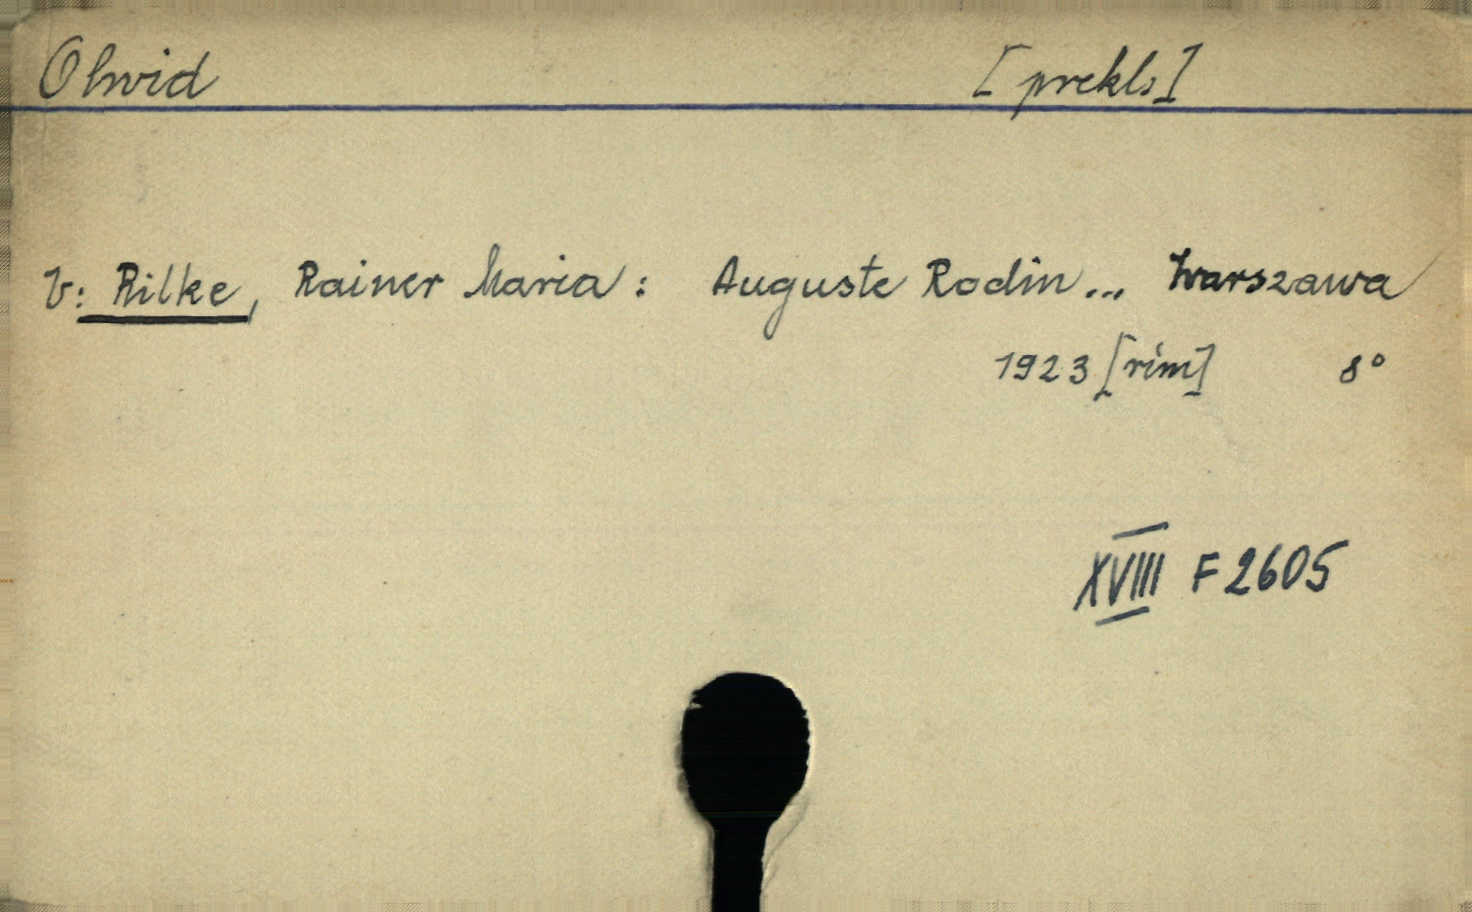 Olwid [prekls]
V: Rilke, Rainer Maria: Auguste Rodin... Warszawa
1923 [rím] 8°
XVIII F 2605